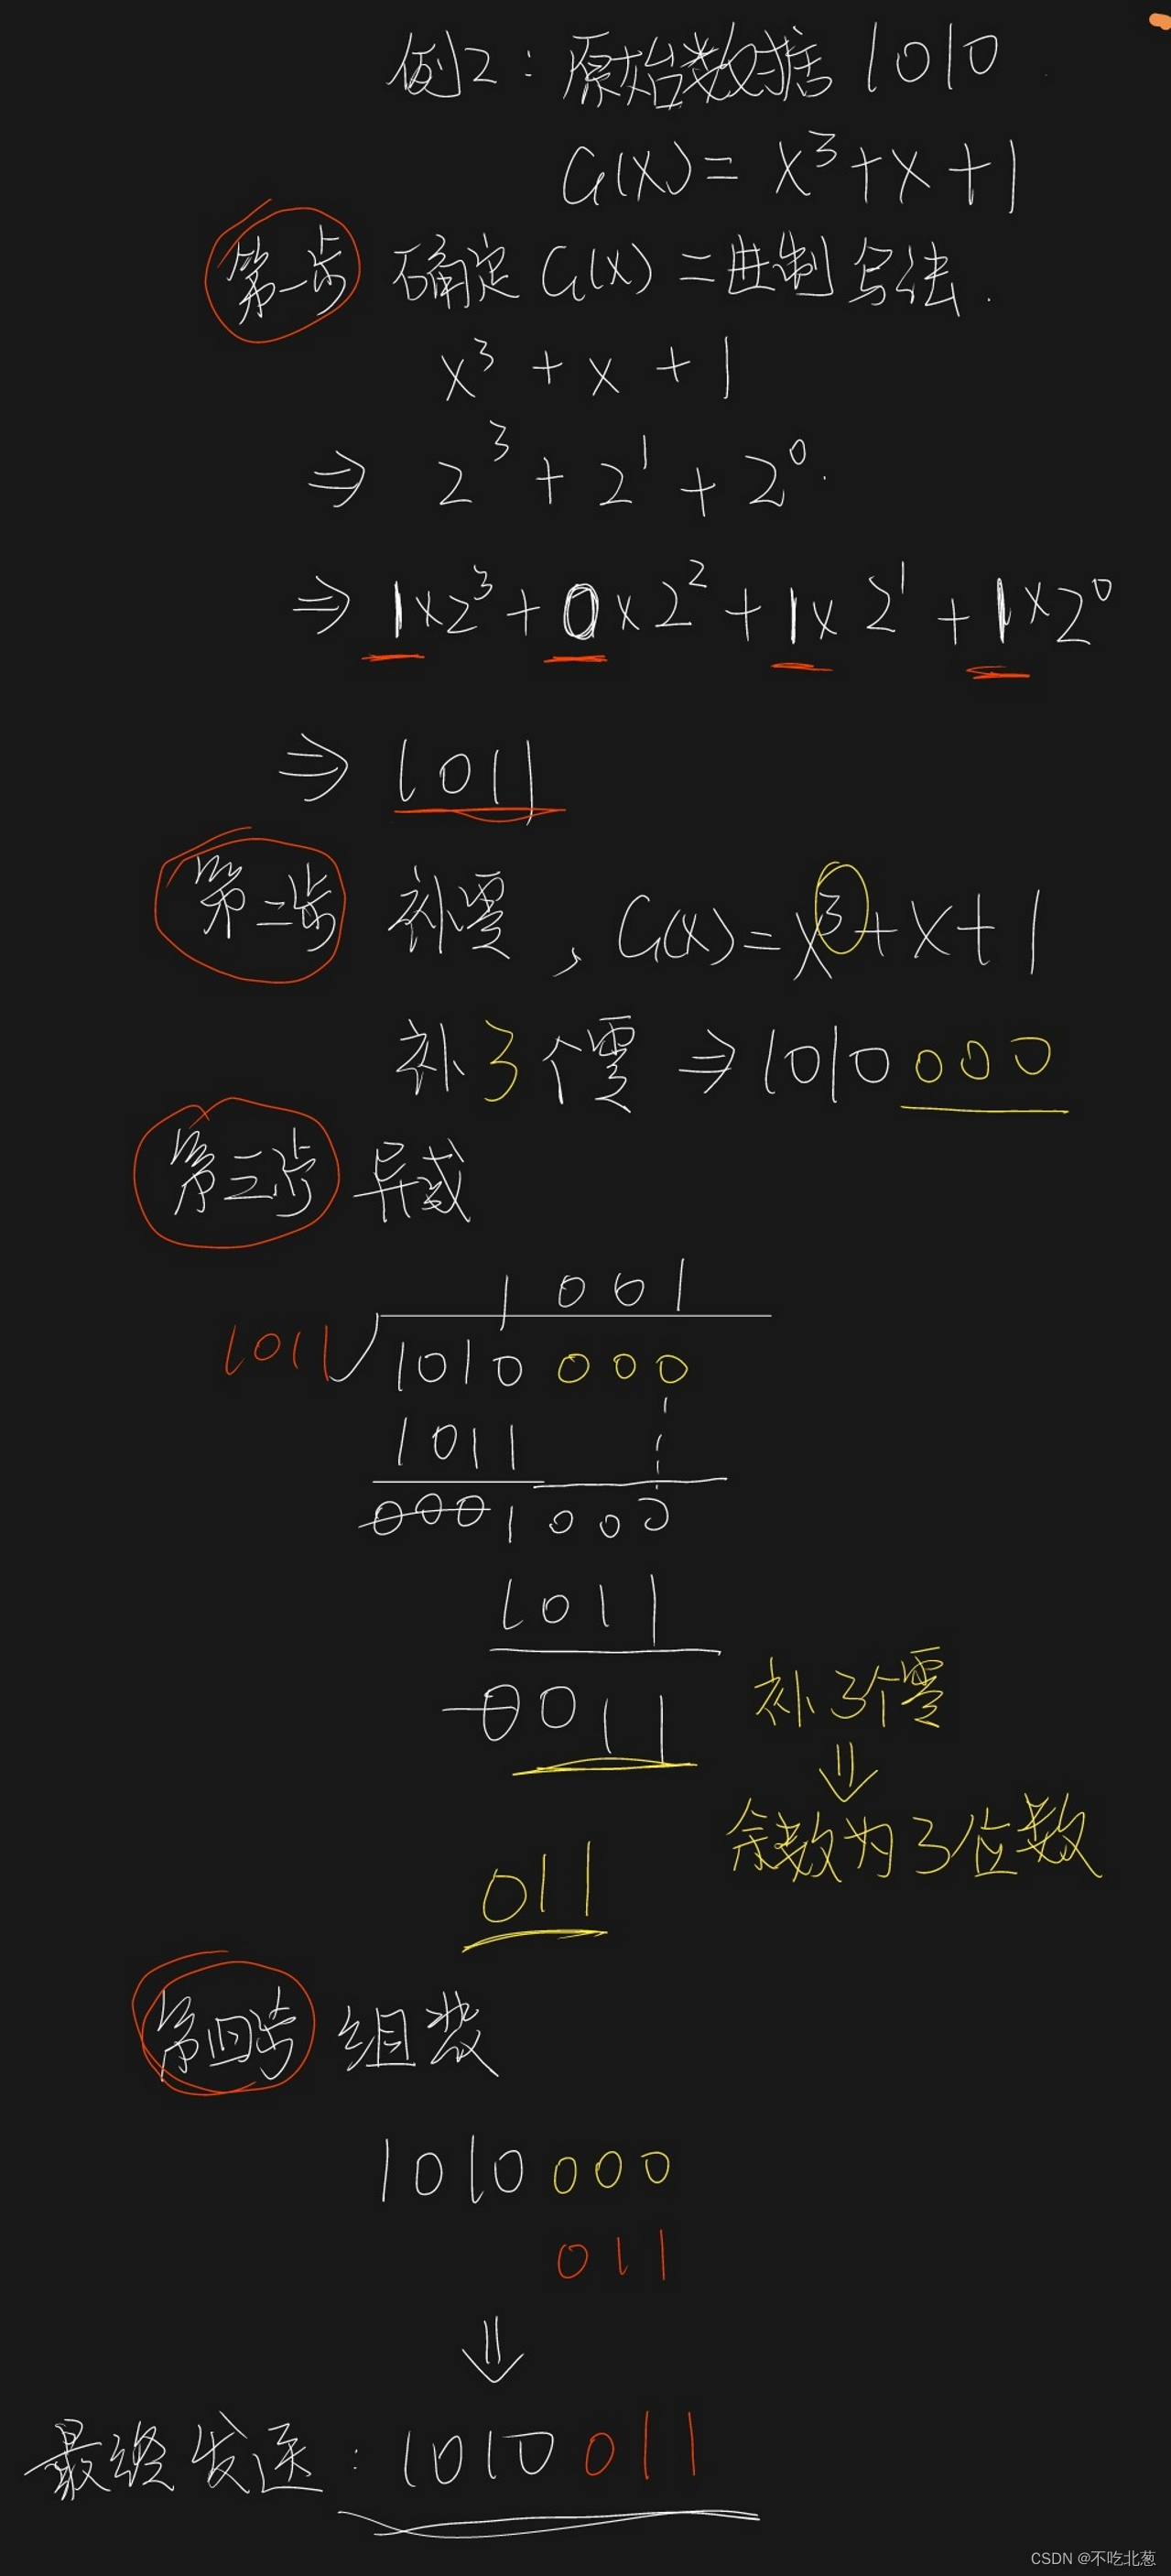 例2：原始数据 1010
G(x)= x³+x+1
第一步 确定 G(x) 二进制写法.
x³ + x + 1
⇒ 2³ + 2¹ + 2⁰.
⇒ 1×2³ + 0×2² + 1×2¹ + 1×2⁰
⇒ 1011
第二步 补零，G(x)=x³+x+1
补3个零 ⇒1010000
第三步 异或
1001
1011√1010000
1011
0001000
1011
0011
补3个零
⇓
余数为3位数
011
第四步 组装
1010000
011
⇓
最终发送：1010011
CSDN @不吃北葱